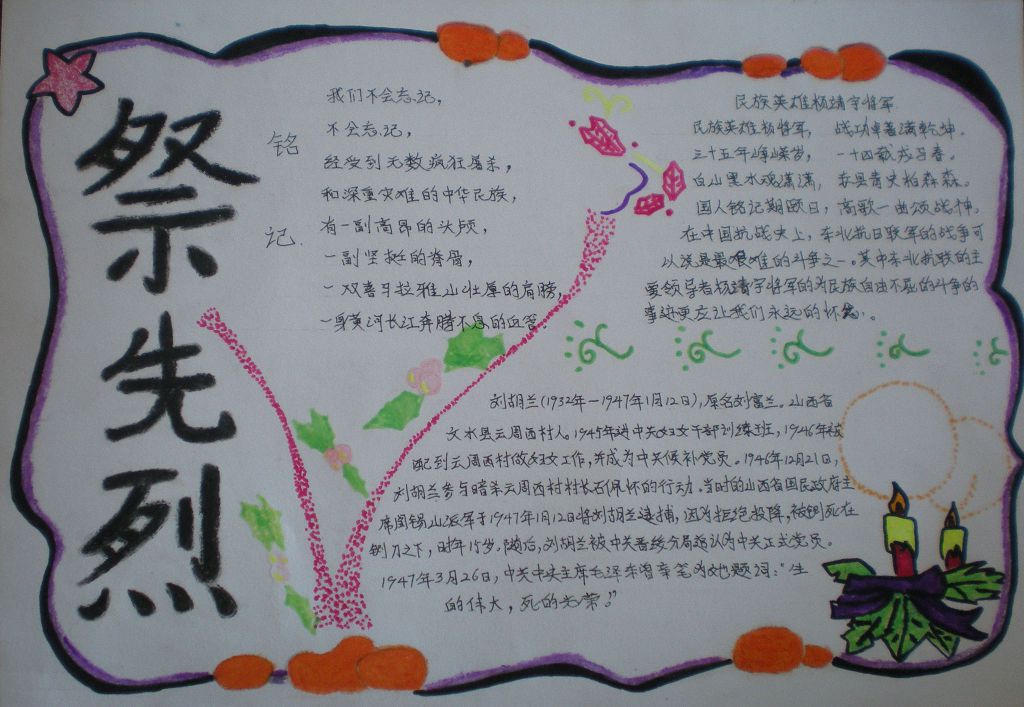 祭先烈
铭记
我们不会忘记,
不会忘记,
经受到无数疯狂屠杀,
和深重灾难的中华民族,
有一副高昂的头颅,
一副坚挺的脊骨,
一双喜马拉雅山壮厚的肩膀,
一身黄河长江奔腾不息的血液.
民族英雄杨靖宇将军
民族英雄杨将军, 战功卓著满乾坤.
三十五年峥嵘岁, 一十四载戎马春.
白山黑水魂潇潇, 赤县青史柏森森.
国人铭记期颐日, 高歌一曲颂战神.
在中国抗战史上,东北抗日联军的战争可
以说是最艰难的斗争之一。其中东北抗联的主
要领导者杨靖宇将军的为民族自由不屈的斗争的
事迹更应让我们永远的怀念。
刘胡兰(1932年—1947年1月12日),原名刘富兰。山西省
文水县云周西村人。1945年进中共妇女干部训练班,1946年被
配到云周西村做妇女工作,并成为中共候补党员。1946年12月21日,
刘胡兰参与暗杀云周西村村长石佩怀的行动.当时的山西省国民政府主
席阎锡山派军于1947年1月12日将刘胡兰逮捕,因为拒绝投降,被铡死在
铡刀之下,时年15岁。随后,刘胡兰被中共晋绥分局追认为中共正式党员。
1947年3月26日,中共中央主席毛泽东曾亲笔为她题词:“生
的伟大,死的光荣!”